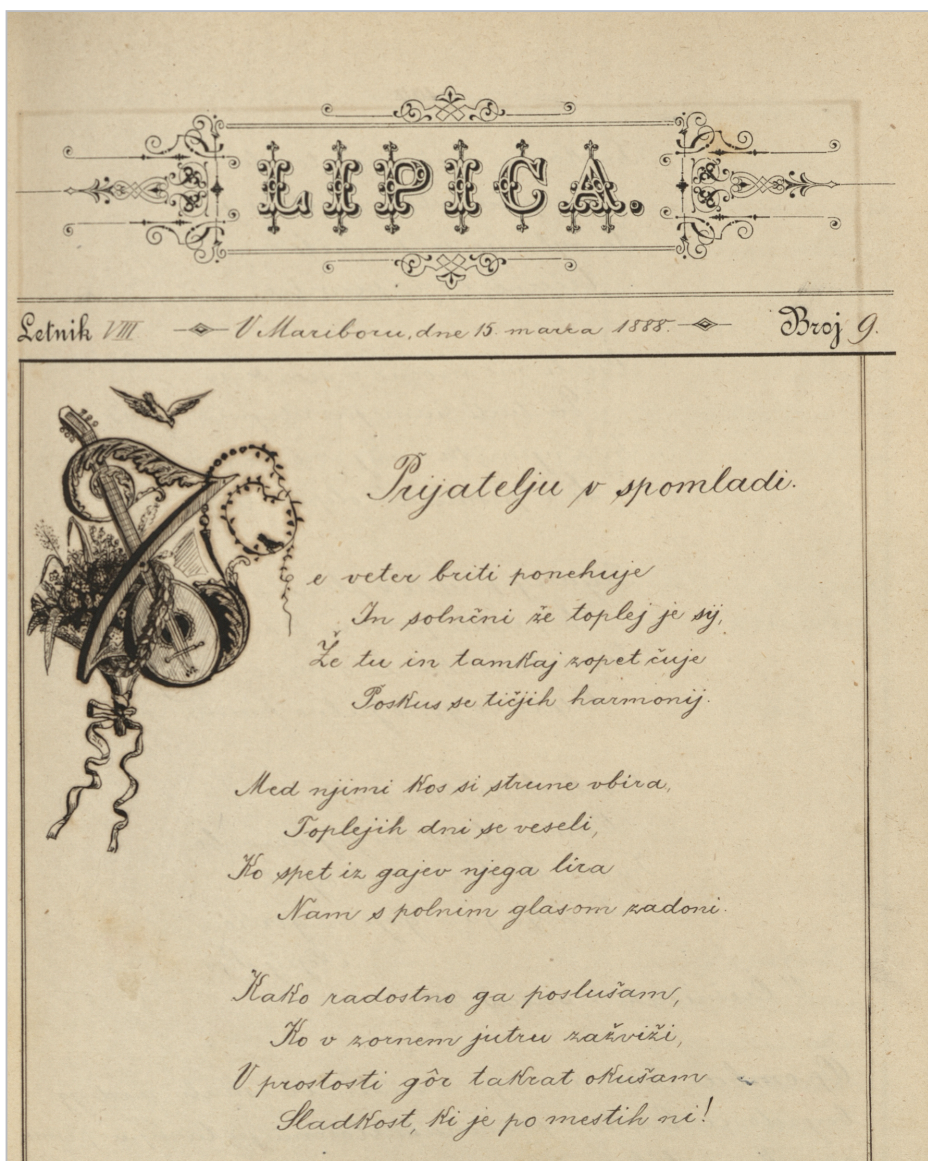 LIPICA.
Letnik VIII V Mariboru, dne 15. marca 1888. Broj 9.
Prijatelju v spomladi.
Že veter briti ponehuje
In solnčni že toplej je sij,
Že tu in tamkaj zopet čuje
Poskus se tičjih harmonij.
Med njimi kos si strune vbira,
Toplejih dni se veseli,
Ko spet iz gajev njega lira
Nam s polnim glasom zadoni.
Kako radostno ga poslušam,
Ko v zornem jutru zažviži,
V prostosti gôr takrat okušam
Sladkost, ki je po mestih ni!